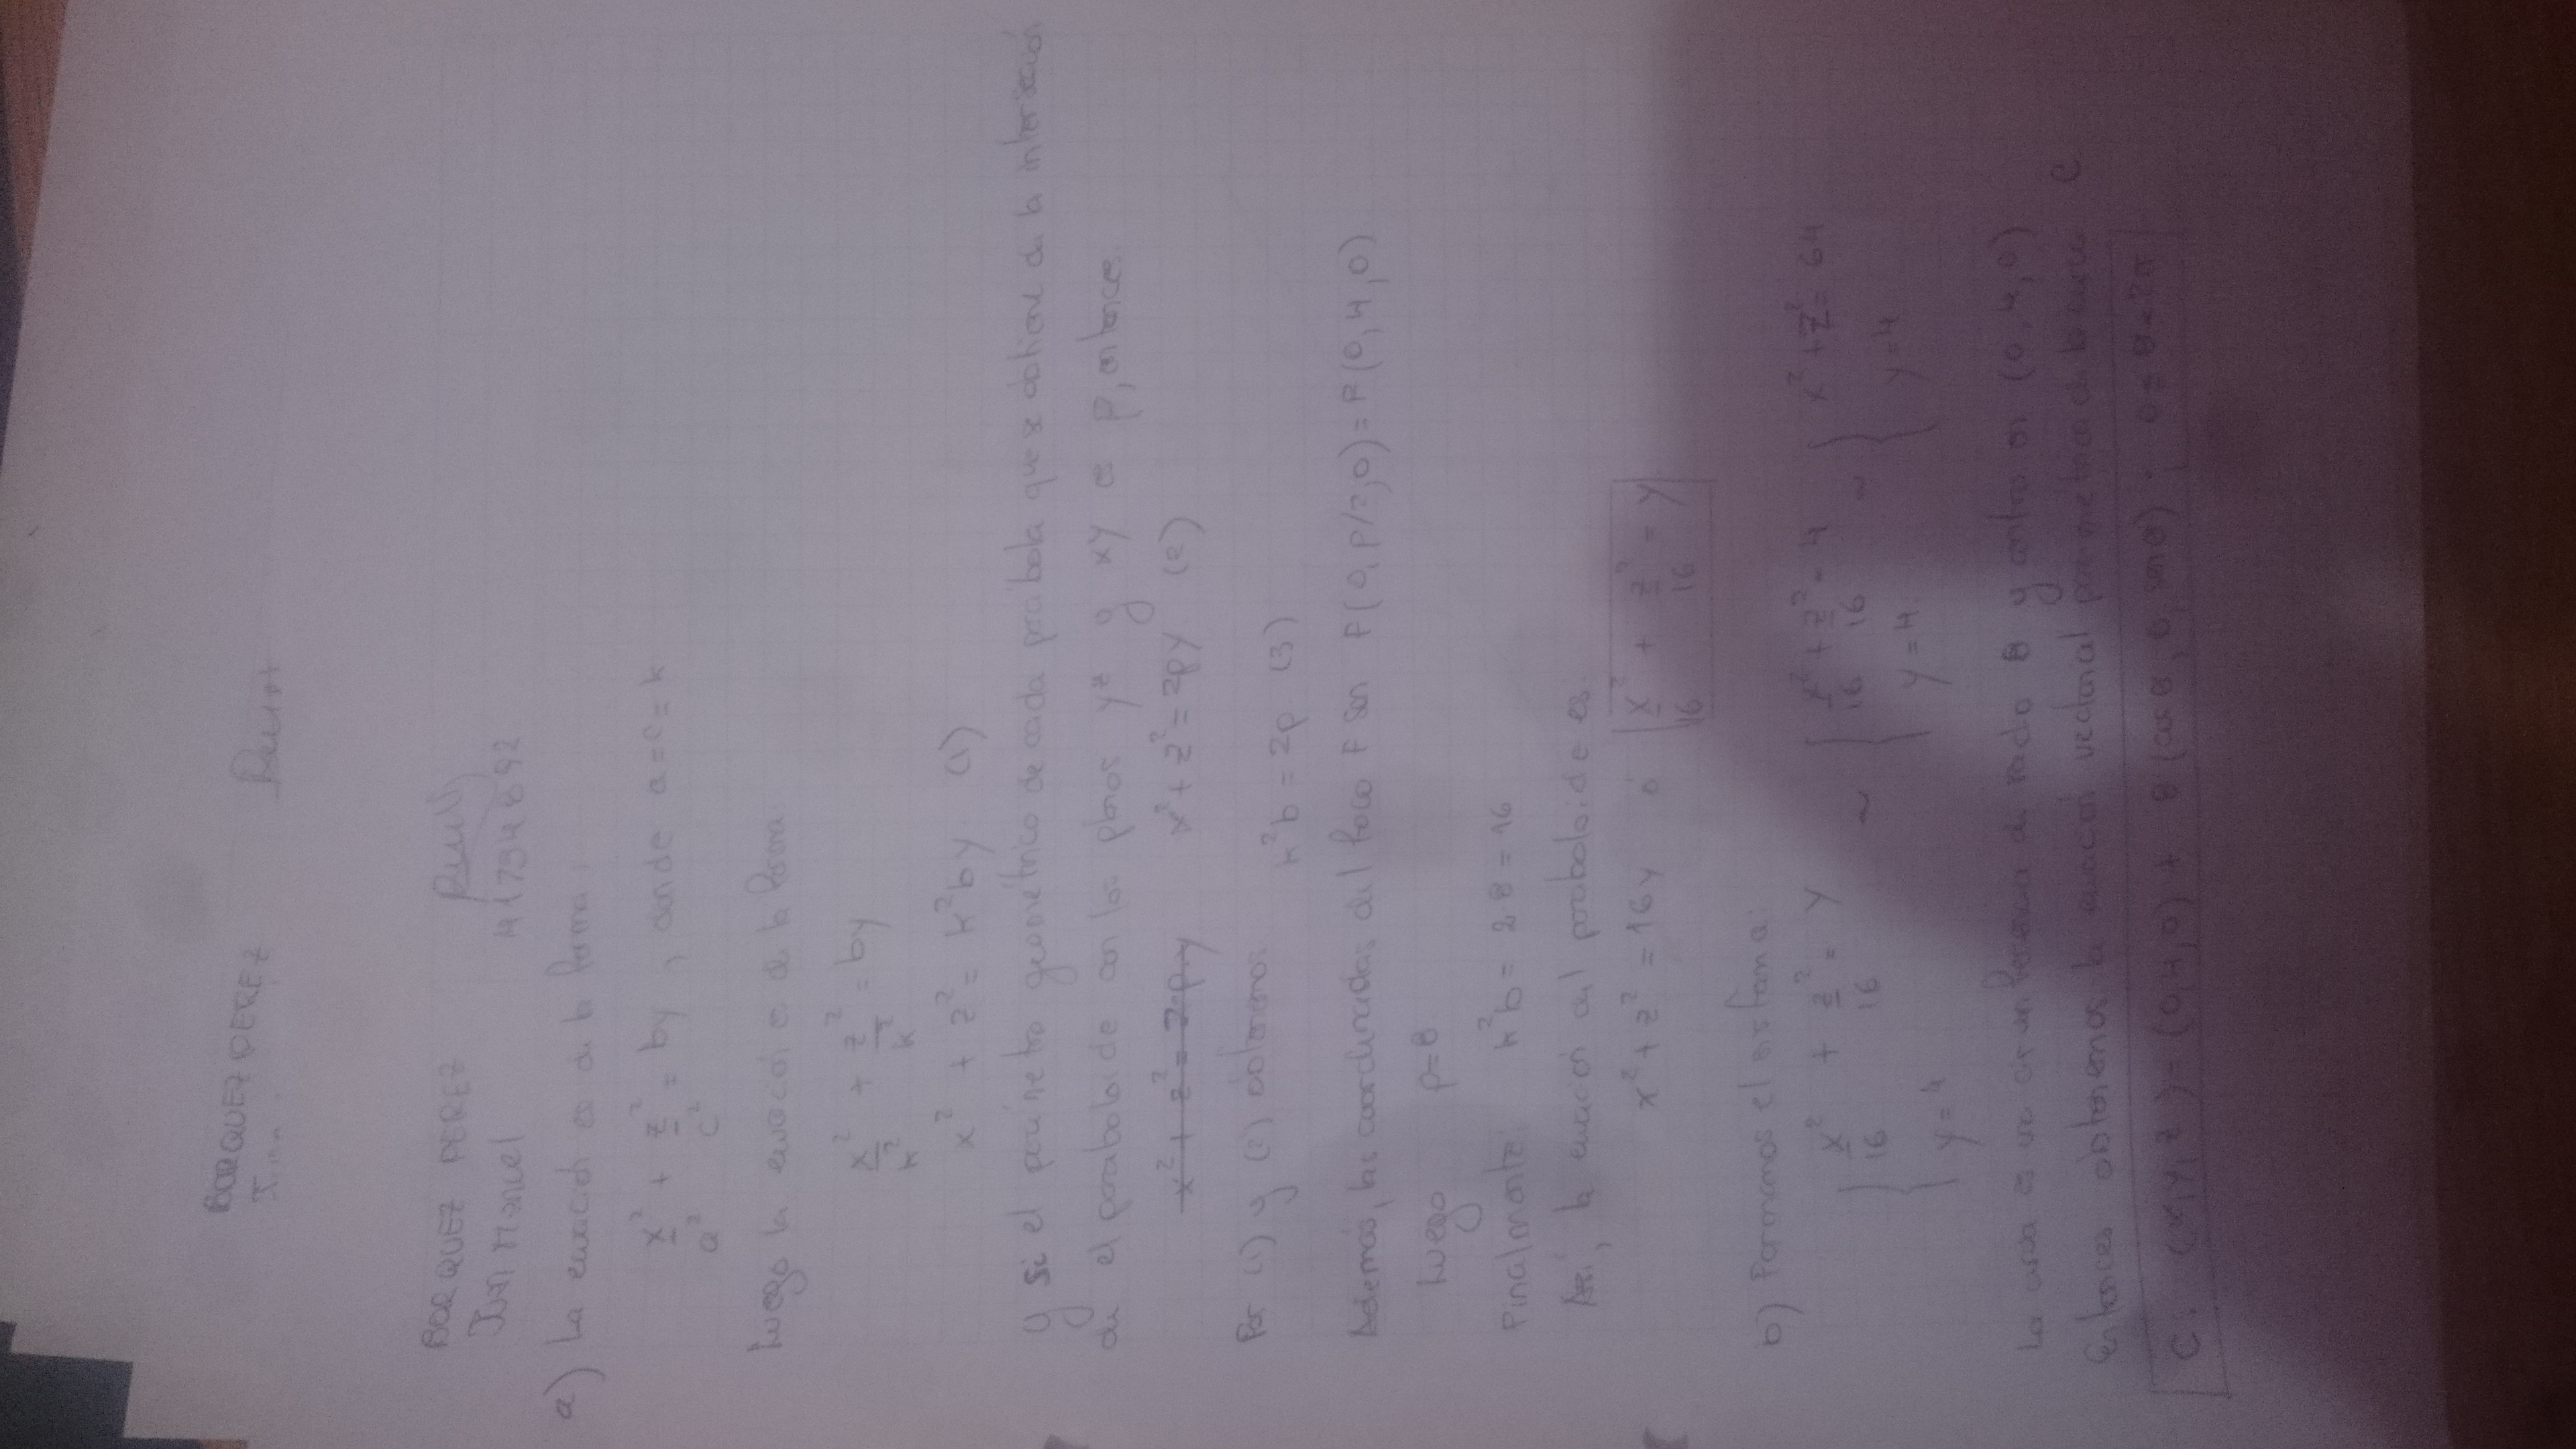 BARQUEZ PEREZ
BARQUEZ PEREZ
Juan Manuel 41794892
a) La ecuación es de la forma:
x²/a² + z²/c² = by , donde a=c=k
Luego la ecuación es de la forma:
x²/k² + z²/k² = by
x² + z² = k²by (1)
y si el parámetro geométrico de cada parábola que se obtiene de la intersección
de el paraboloide con los planos yz y xy es p, entonces:
x² + z² = 2py x² + z² = 2py (2)
Por (1) y (2) obtenemos
k²b = 2p (3)
Además, las coordenadas del foco F son F(0, p/2, 0) = F(0, 4, 0)
Luego p=8
Finalmente: k²b = 2 8 = 16
Así, la ecuación del paraboloide es:
x² + z² = 16y ó x²/16 + z²/16 = y
b) Formamos el sistema:
{ x²/16 + z²/16 = y ~ { x²/16 + z²/16 = 4 ~ { x² + z² = 64
{ y = 4 { y = 4 { y = 4
La curva es una circunferencia de radio 8 y centro en (0, 4, 0)
Entonces obtenemos la ecuación vectorial paramétrica de la curva C
C: (x, y, z) = (0, 4, 0) + 8 (cos θ, 0, sen θ) ; 0 ≤ θ < 2π